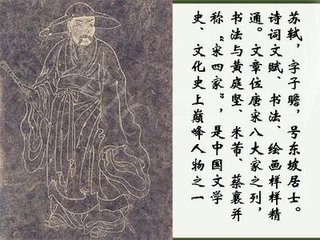 苏轼，字子瞻，号东坡居士。
诗词文赋、书法、绘画样样精
通。文章位唐宋八大家之列，
书法与黄庭坚、米芾、蔡襄并
称“宋四家”，是中国文学
史、文化史上巅峰人物之一